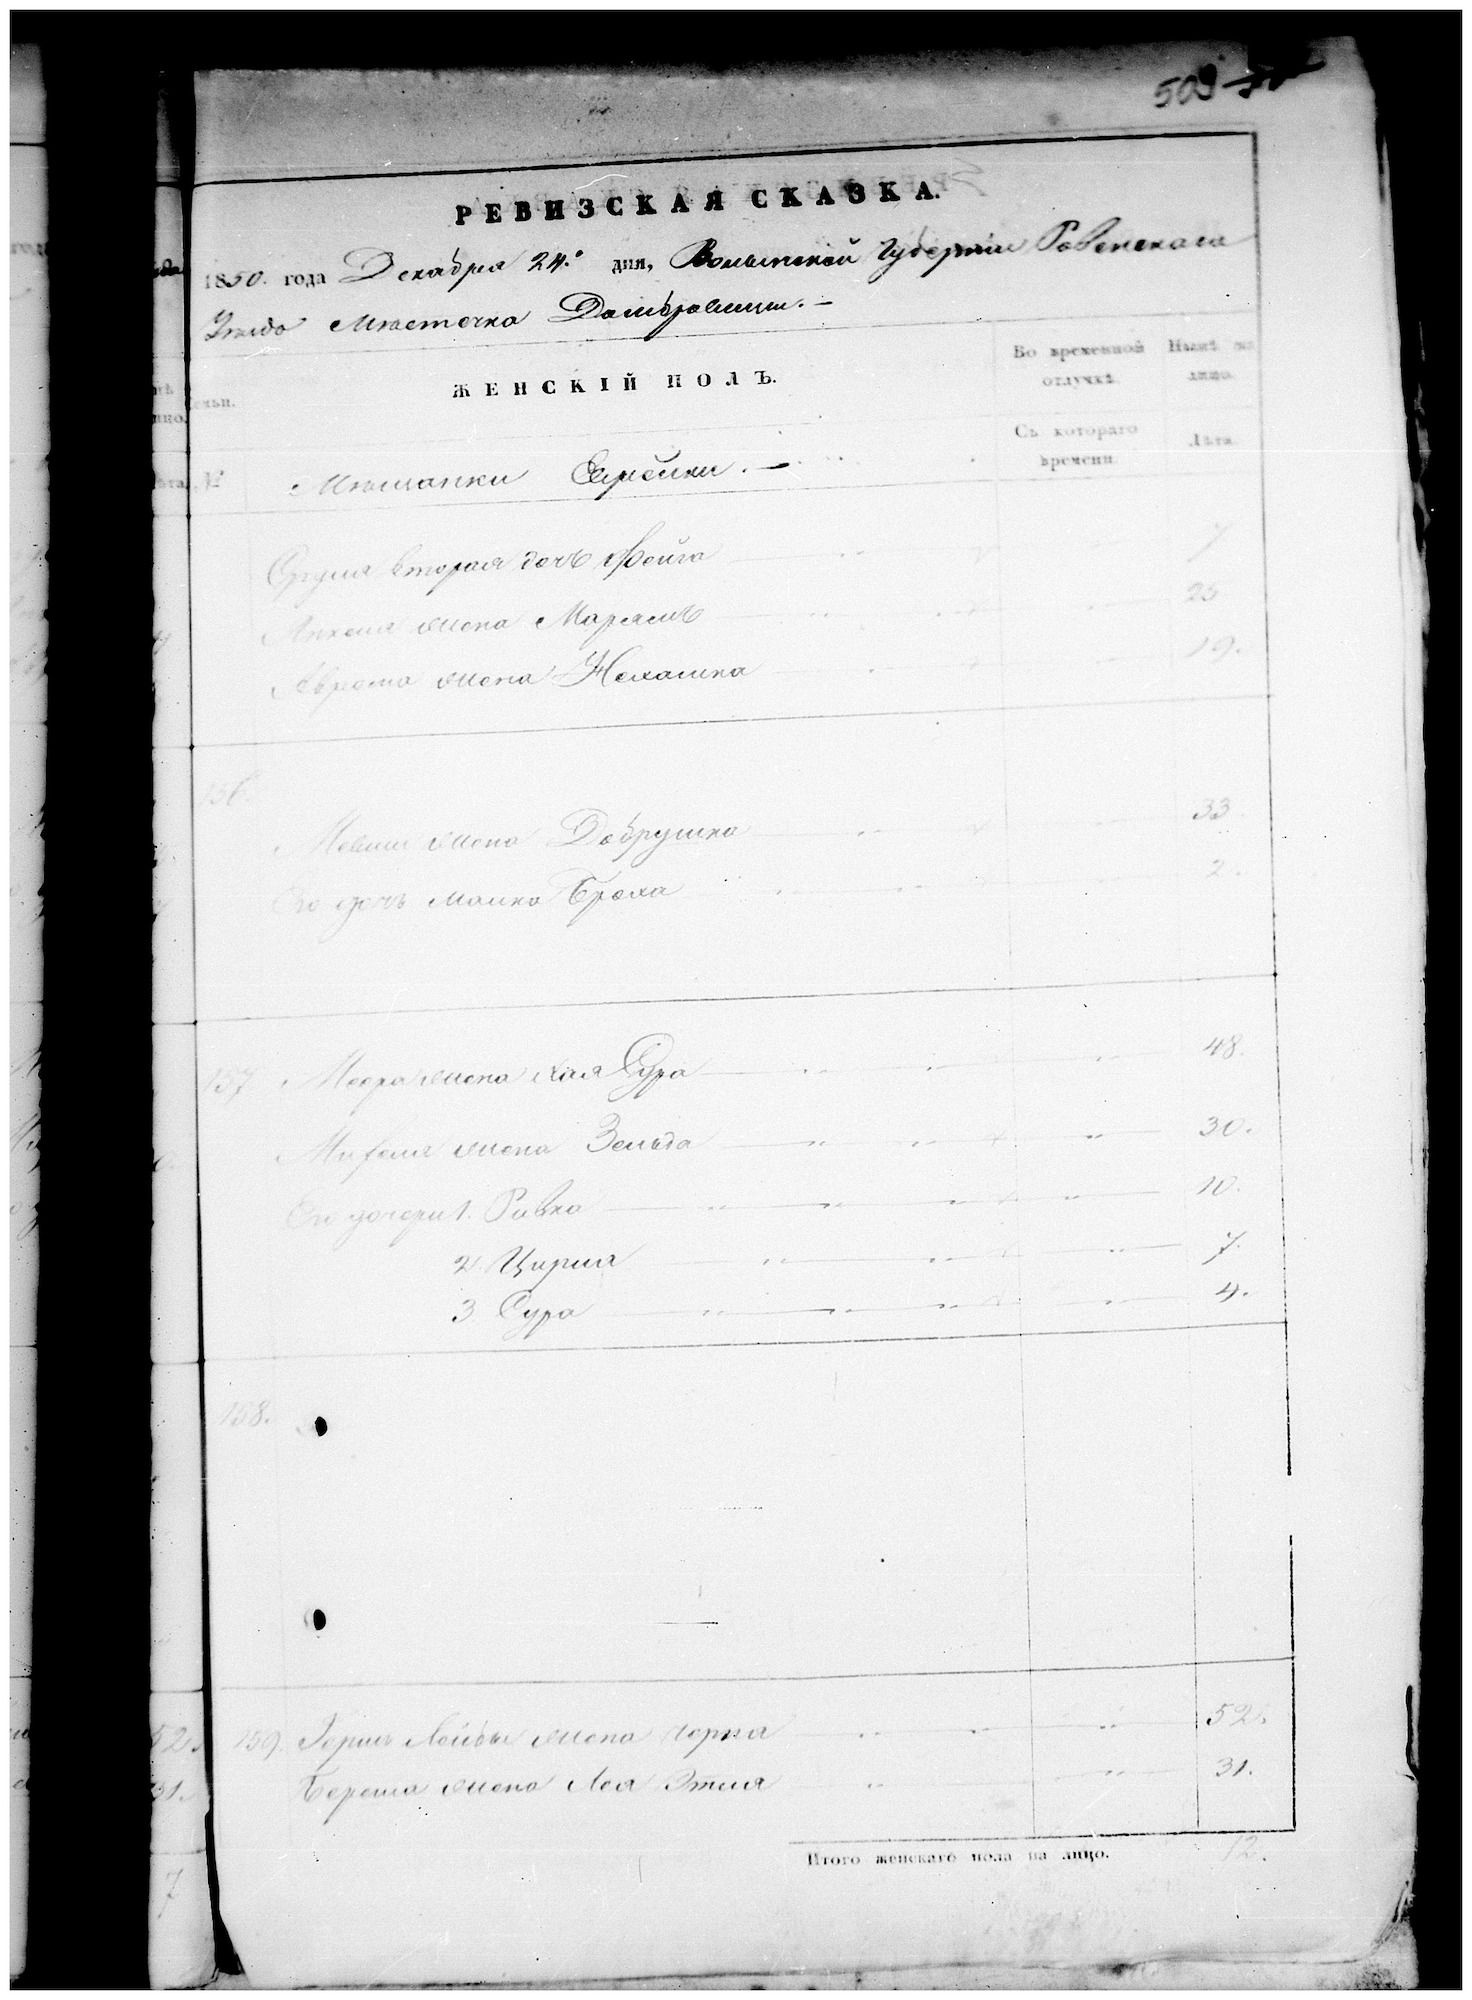 509
РЕВИЗСКАЯ СКАЗКА.
1850. года Декабря 24.º дня, Волынской Губернии Ровенскаго
Уезда Местечка Домбровицы.
ЖЕНСКІЙ ПОЛЪ.
Во временной отлучкѣ.
Налицо
семьи.
Съ котораго времени.
Лѣта.
№
Мещанки Еврейки.
вторая дочь Фейга 7
жена Марьямъ 25
жена Нехамка 19.
156.
Мовши жена Добрушка 33
Его дочь Малка Броха 2.
157 Меера жена Хая Сура 48.
жена Зельда 30.
Его дочери 1. Ривка 10.
2. Цирля 7.
3 Сура 4.
158.
159. Герша Лейбы жена Черна 52.
Берка жена Лея Этля 31.
Итого женскаго пола на лицо. 12.
52.
31.
7